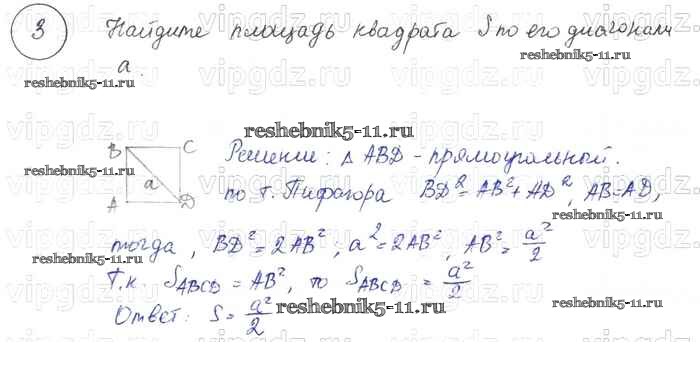 3 Найдите площадь квадрата S по его диагонали
a.
reshebnik5-11.ru
reshebnik5-11.ru
reshebnik5-11.ru
B C
a
A D
Решение: △ ABD - прямоугольный.
по т. Пифагора BD² = AB² + AD², AB=AD,
тогда, BD² = 2AB²; a² = 2AB², AB² = a²/2
Т.к. S_ABCD = AB², то S_ABCD = a²/2
Ответ: S = a²/2
reshebnik5-11.ru
reshebnik5-11.ru
reshebnik5-11.ru
reshebnik5-11.ru
vipgdz.ru vipgdz.ru vipgdz.ru vipgdz.ru